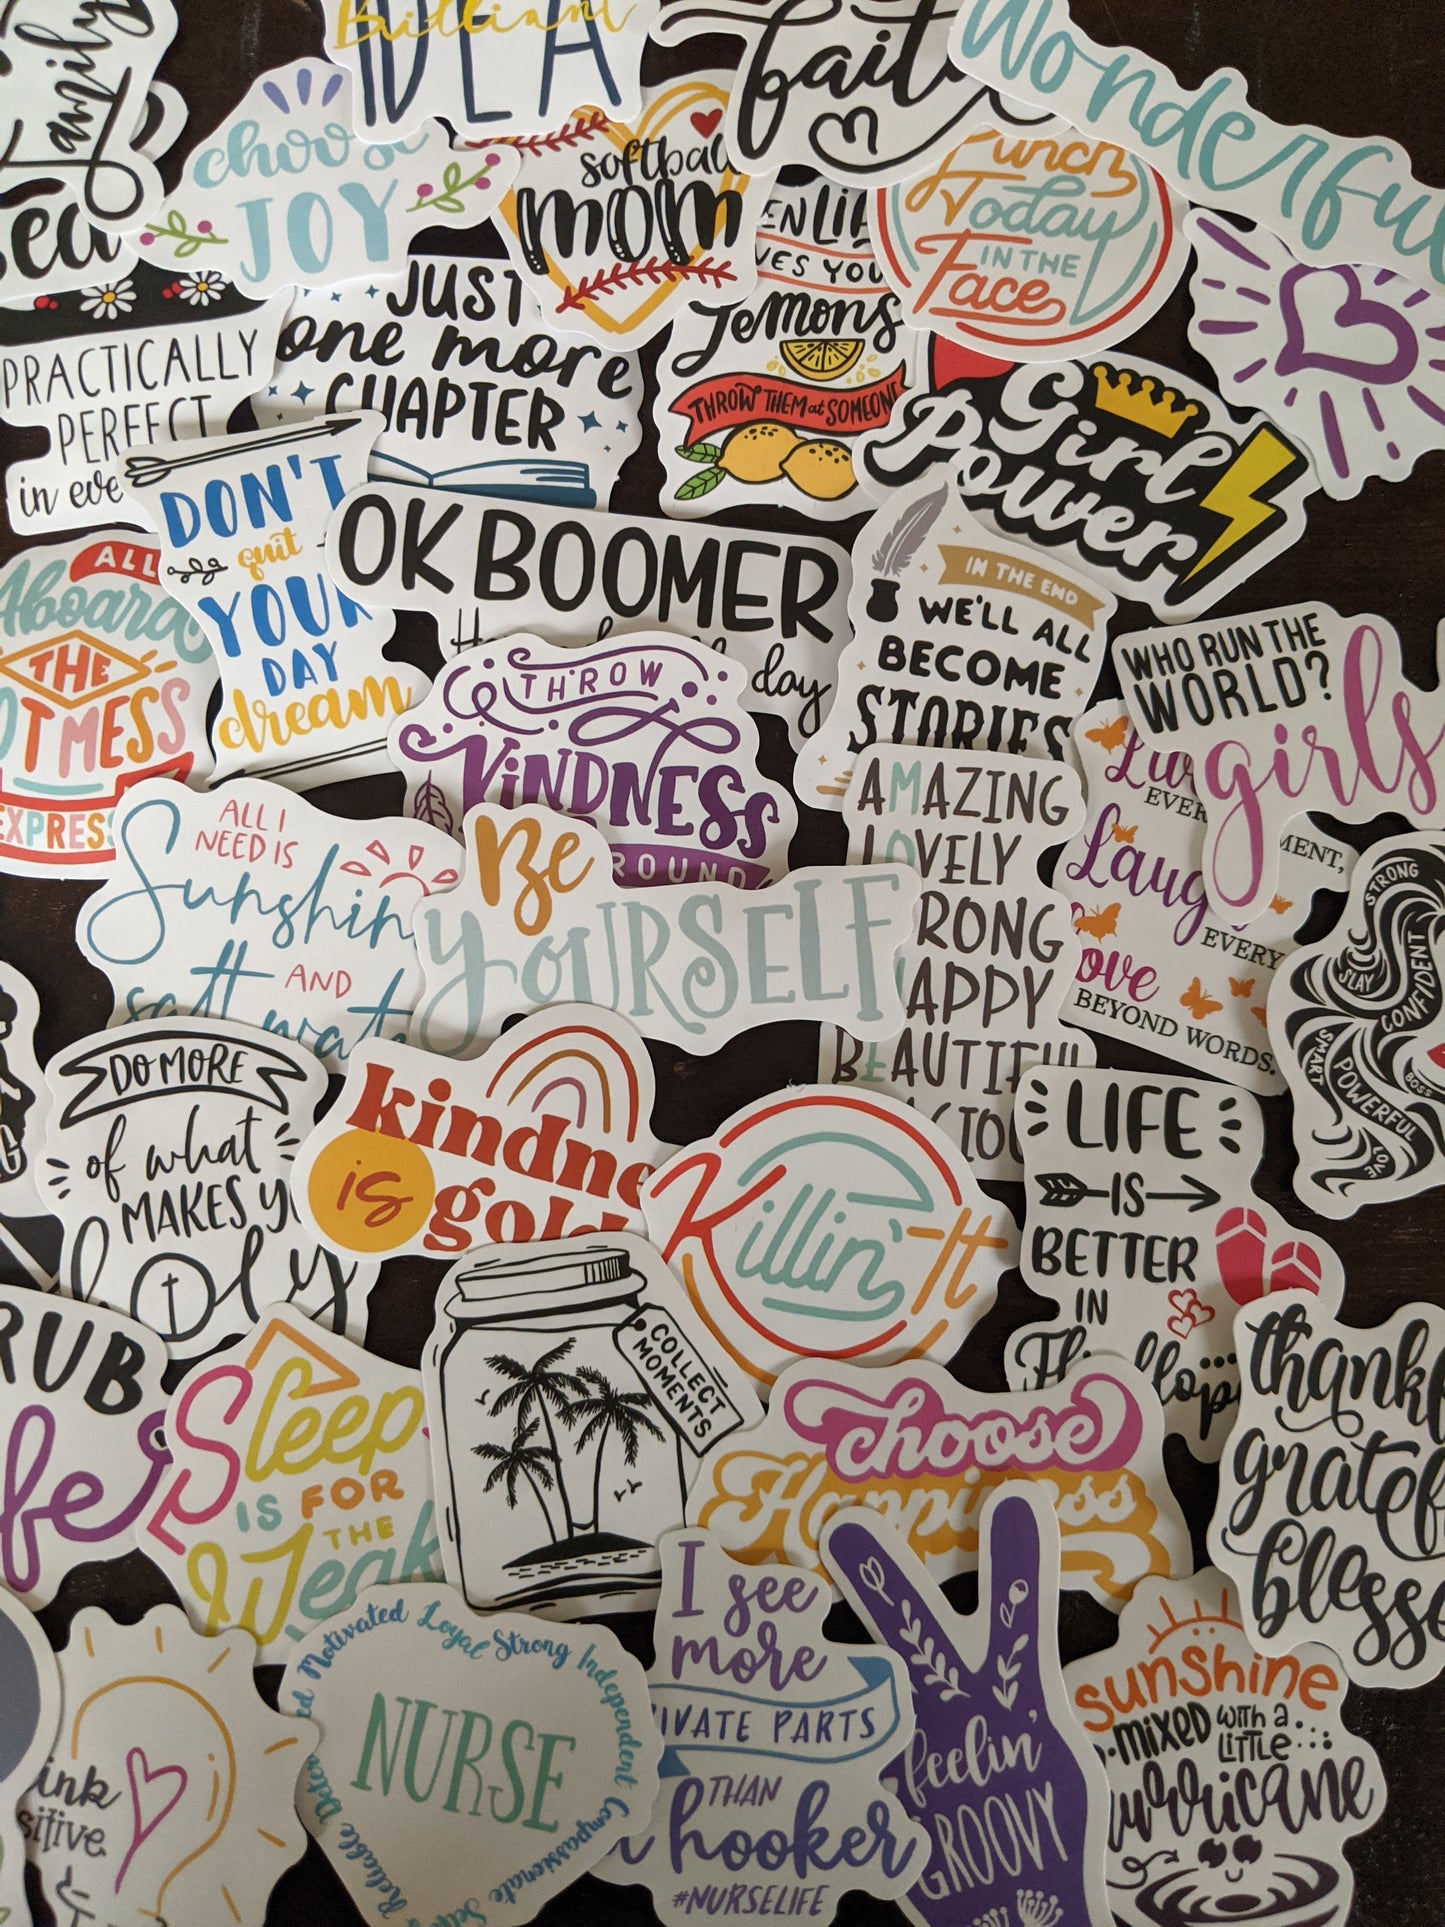 family
Brilliant
IDEA
faith
Wonderful
choose
JOY
softball
MOM
Punch
Today
IN THE
Face
LIFE
YOU
lemons
THROW THEM at SOMEONE
PRACTICALLY
PERFECT
in
JUST
one more
CHAPTER
Girl
Power
DON'T
quit
YOUR
DAY
dream
OK BOOMER
day
IN THE END
WE'LL ALL
BECOME
STORIES
WHO RUN THE
WORLD?
girls
ALL
Aboard
THE
MESS
EXPRESS
THROW
KINDNESS
AMAZING
LOVELY
STRONG
HAPPY
BEAUTIFUL
Live
EVERY
Laugh
EVERY
Love
BEYOND WORDS.
STRONG
SLAY
CONFIDENT
SMART
POWERFUL
BOSS
LOVE
ALL I
NEED IS
Sunshine
AND
salt water
Be
YOURSELF
DO MORE
of what
MAKES YOU
holy
kindness
is gold
Killin' It
LIFE
IS
BETTER
IN
COLLECT
MOMENTS
thankful
grateful
blessed
Sleep
IS FOR
THE
Weak
choose
Happiness
Motivated Loyal Strong Independent Compassionate
Reliable
NURSE
I see
more
PRIVATE PARTS
THAN
a hooker
#NURSELIFE
feelin'
GROOVY
sunshine
mixed with a
little
hurricane